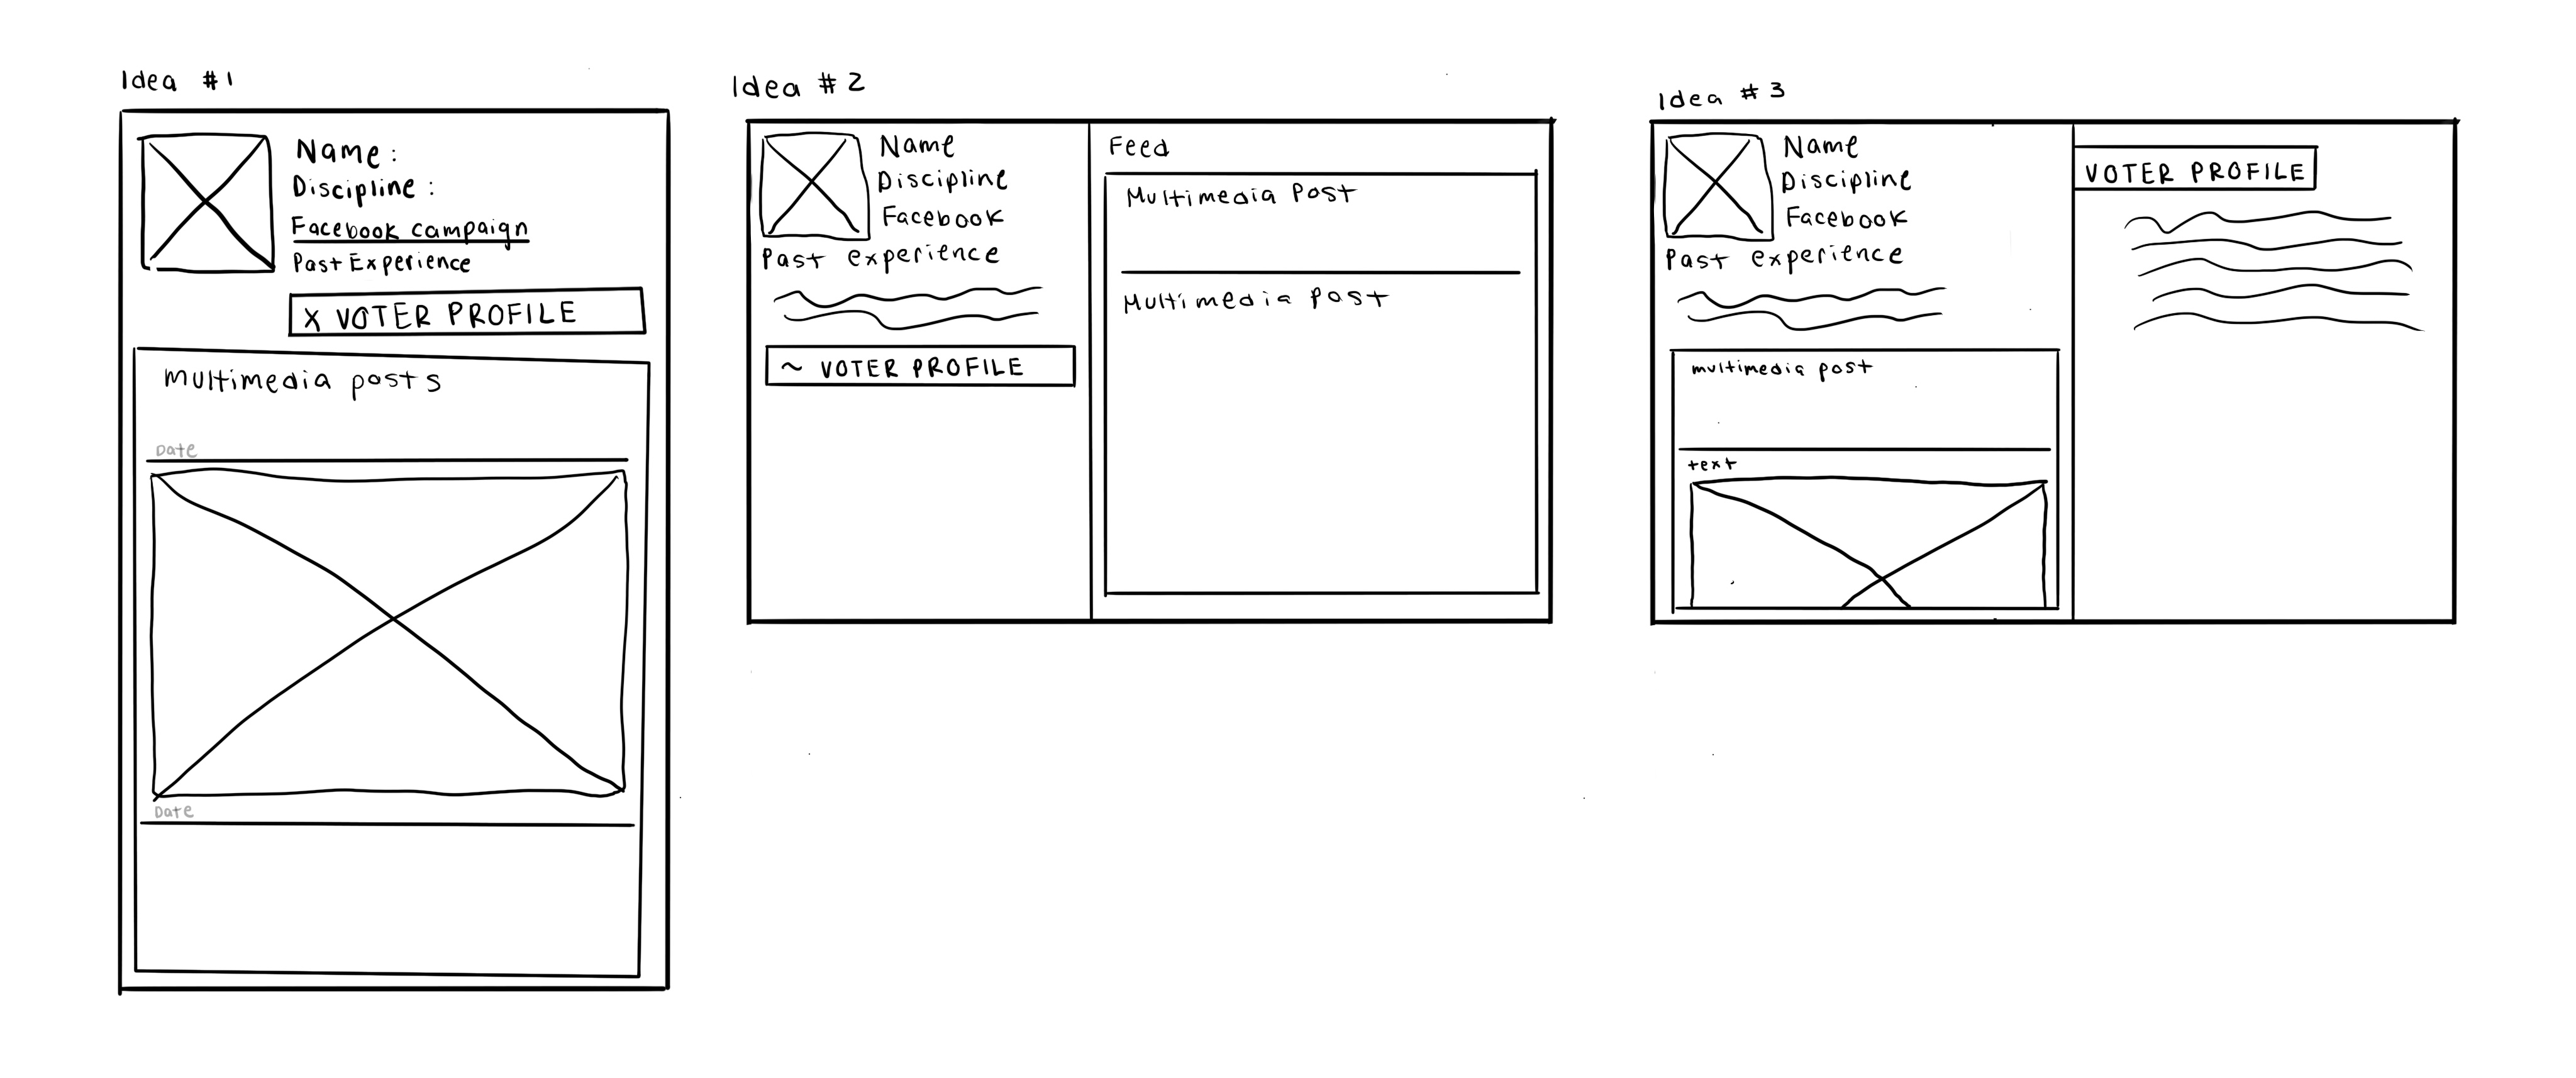 Idea #1
Name :
Discipline :
Facebook campaign
Past Experience
X VOTER PROFILE
multimedia posts
Date
Date
Idea #2
Name
Discipline
Facebook
Past experience
~ VOTER PROFILE
Feed
Multimedia Post
Multimedia Post
Idea #3
Name
Discipline
Facebook
Past experience
multimedia post
text
VOTER PROFILE